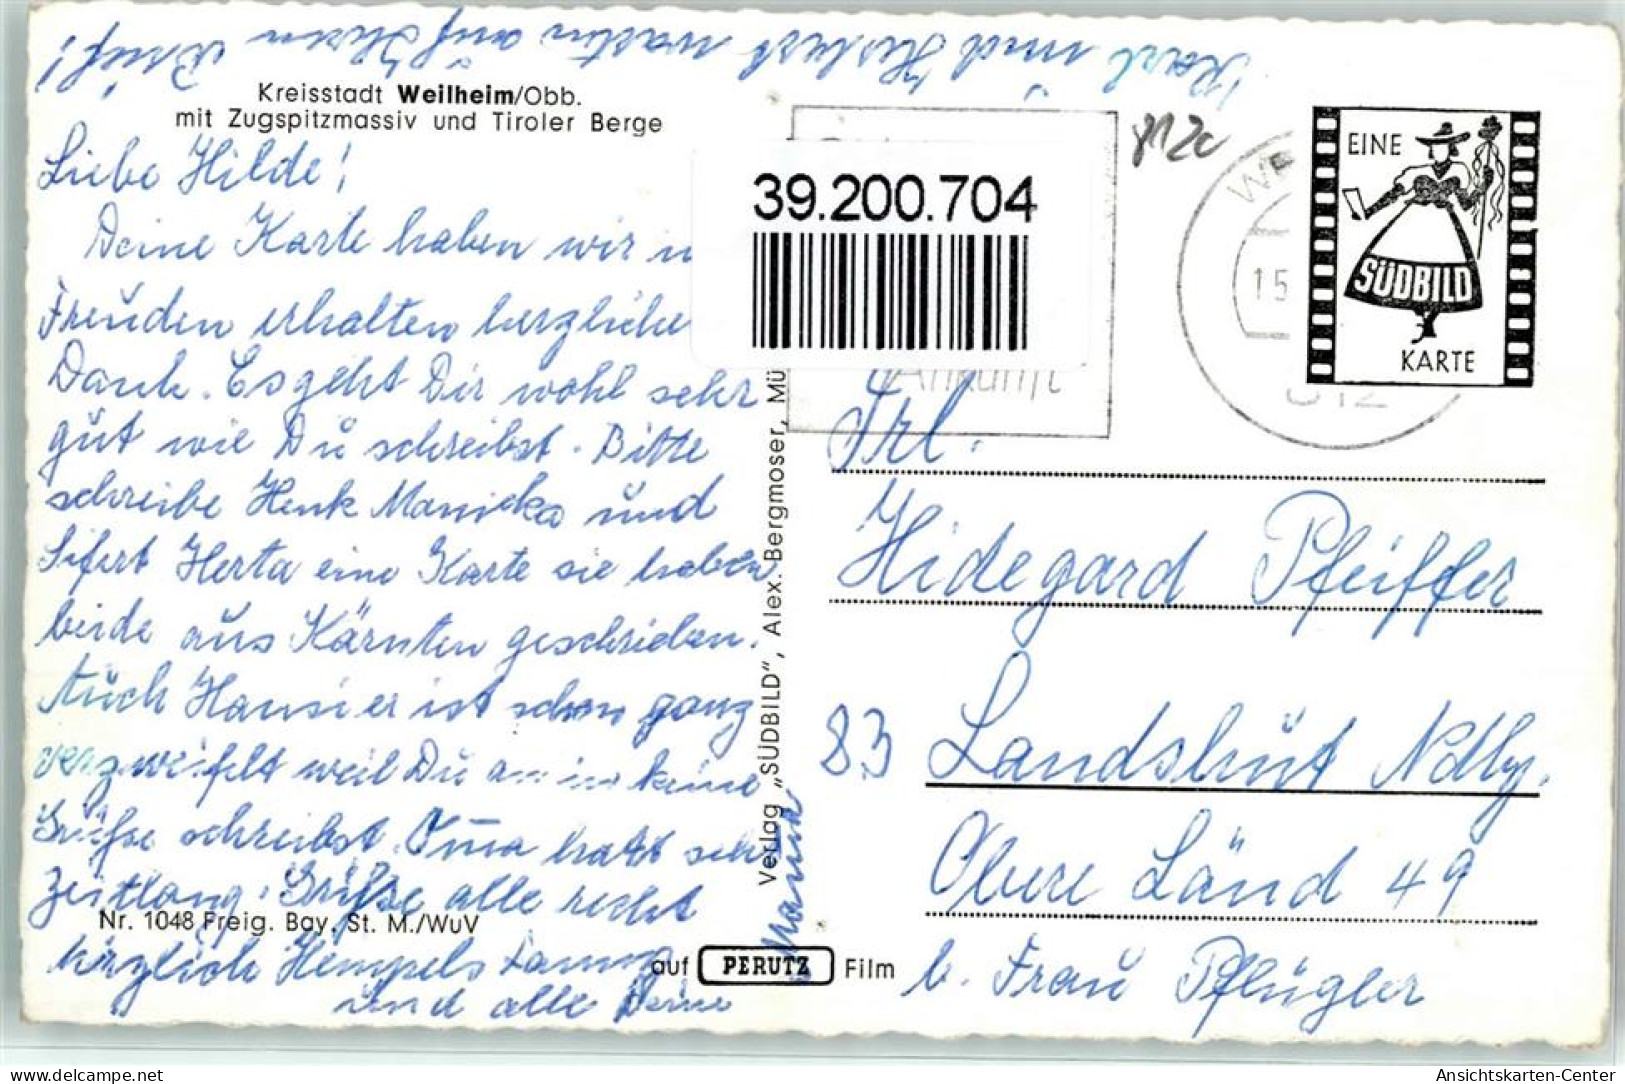 Karl und Herbert warten auf Ihren Brief!
Kreisstadt Weilheim/Obb.
mit Zugspitzmassiv und Tiroler Berge
Liebe Hilde!
Deine Karte haben wir
Freuden erhalten herzlichen
Dank. Es geht Dir wohl sehr
gut wie Du schreibst. Bitte
schreibe Henk und
Sifert Herta eine Karte sie haben
beide aus Kärnten geschrieben.
Auch Hansi er ist schon ganz
verzweifelt weil Du keine
Grüße schreibst. Oma hatt sehr
Zeitlang. Grüße alle recht
herzlich Hempels
und alle Deine
Mama
Nr. 1048 Freig. Bay. St. M./WuV
Verlag „SÜDBILD", Alex. Bergmoser, Mü
auf PERUTZ Film
39.200.704
Ankunft
812c
15
812
EINE
SÜDBILD
KARTE
Frl.
Hidegard Pfeiffer
83 Landshut Ndby.
Obere Länd 49
b. Frau Pflügler
oldthing.de
Ansichtskarten-Center